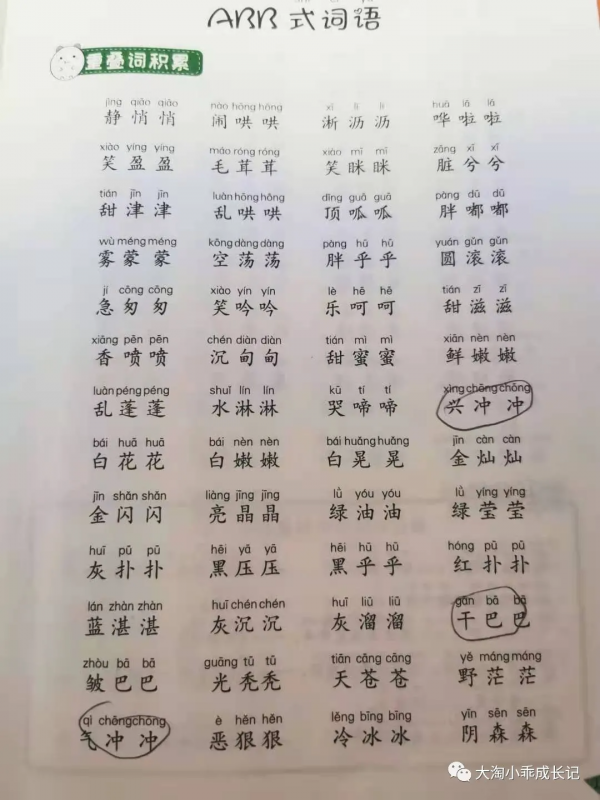 ABB 式词语
重叠词积累
jìng qiāo qiāo nào hōng hōng xī lì lì huā lā lā
静悄悄 闹哄哄 淅沥沥 哗啦啦
xiào yíng yíng máo róng róng xiào mī mī zāng xī xī
笑盈盈 毛茸茸 笑眯眯 脏兮兮
tián jīn jīn luàn hōng hōng dǐng guā guā pàng dū dū
甜津津 乱哄哄 顶呱呱 胖嘟嘟
wù méng méng kōng dàng dàng pàng hū hū yuán gǔn gǔn
雾蒙蒙 空荡荡 胖乎乎 圆滚滚
jí cōng cōng xiào yín yín lè hē hē tián zī zī
急匆匆 笑吟吟 乐呵呵 甜滋滋
xiāng pēn pēn chén diàn diàn tián mì mì xiān nèn nèn
香喷喷 沉甸甸 甜蜜蜜 鲜嫩嫩
luàn péng péng shuǐ lín lín kū tí tí xìng chōng chōng
乱蓬蓬 水淋淋 哭啼啼 兴冲冲
bái huā huā bái nèn nèn bái huǎng huǎng jīn càn càn
白花花 白嫩嫩 白晃晃 金灿灿
jīn shǎn shǎn liàng jīng jīng lǜ yóu yóu lǜ yíng yíng
金闪闪 亮晶晶 绿油油 绿莹莹
huī pū pū hēi yā yā hēi hū hū hóng pū pū
灰扑扑 黑压压 黑乎乎 红扑扑
lán zhàn zhàn huī chén chén huī liū liū gān bā bā
蓝湛湛 灰沉沉 灰溜溜 干巴巴
zhòu bā bā guāng tū tū tiān cāng cāng yě máng máng
皱巴巴 光秃秃 天苍苍 野茫茫
qì chōng chōng è hěn hěn lěng bīng bīng yīn sēn sēn
气冲冲 恶狠狠 冷冰冰 阴森森
大淘小乖成长记